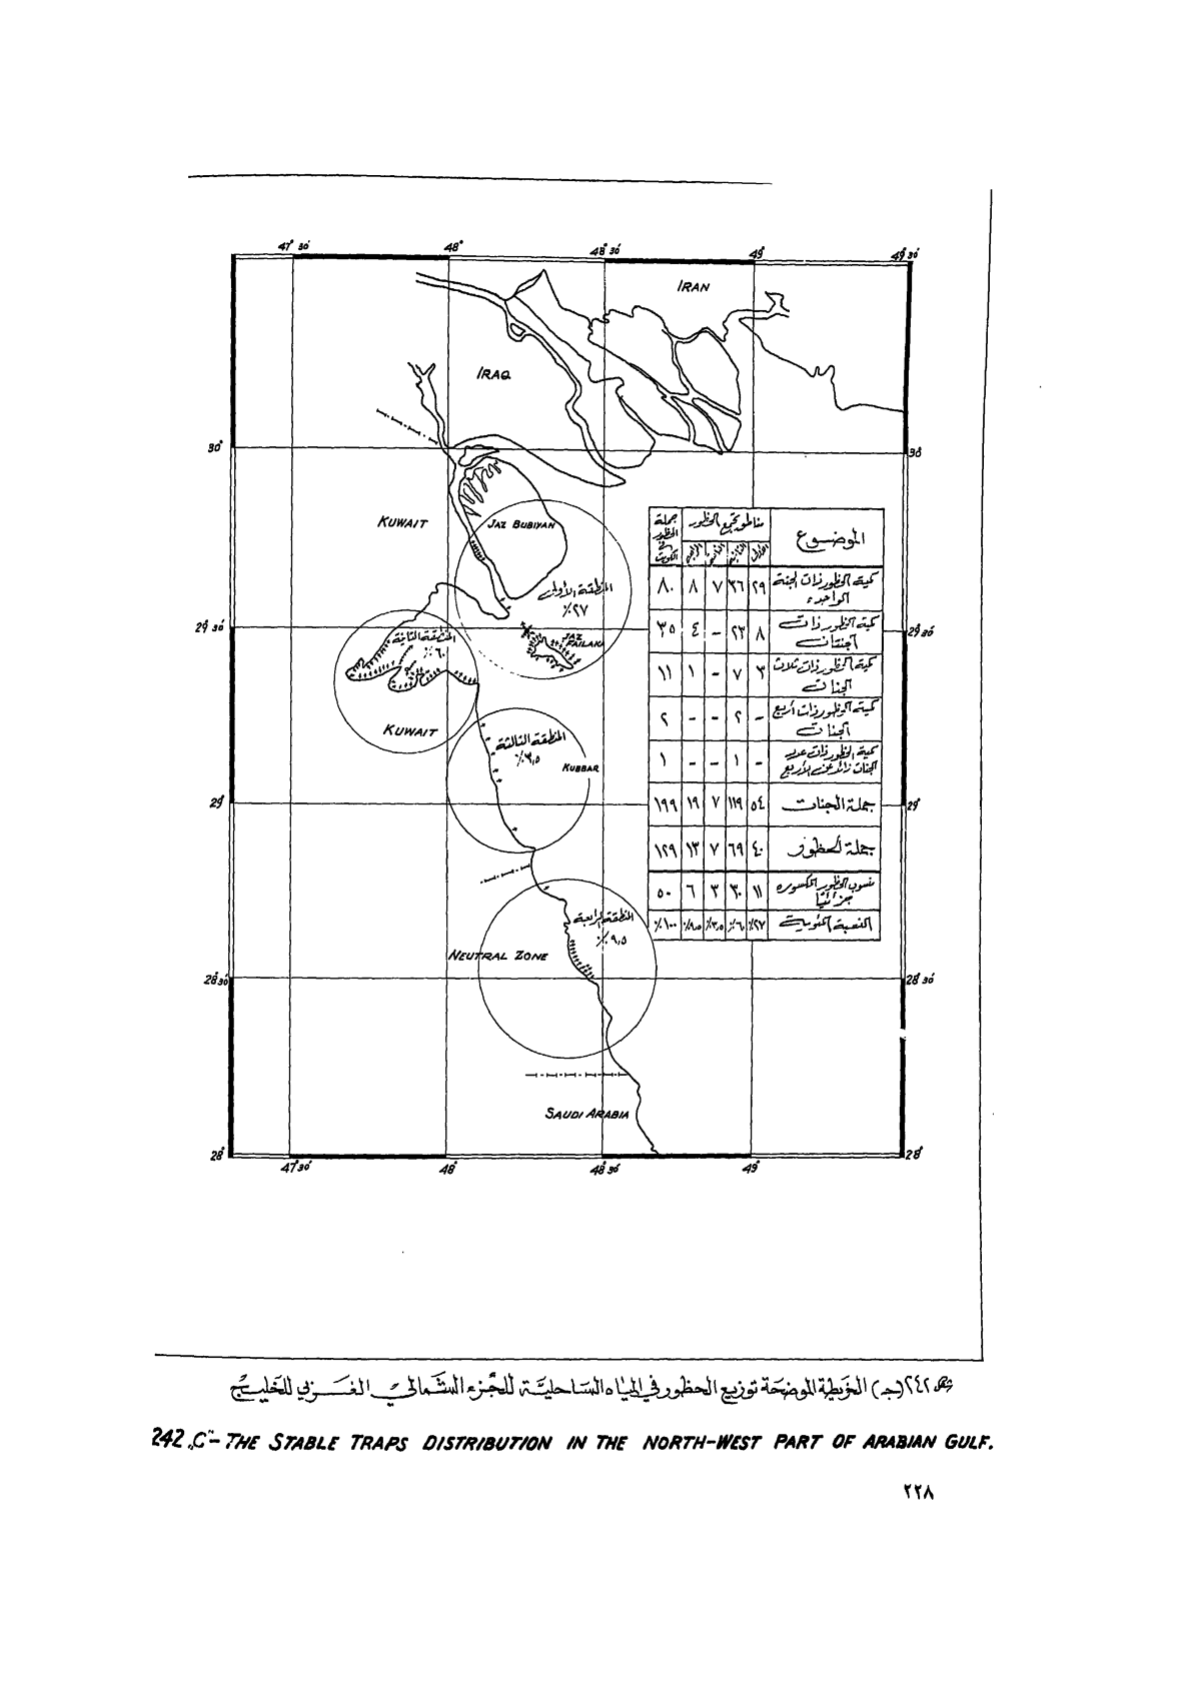 47° 30′ 48° 48° 30′ 49° 49° 30′
IRAN
IRAQ
30° 30°
KUWAIT
JAZ BUBIYAN
المنطقة الأولى
٢٧٪
29° 30′ 29° 30′
JAZ FAILAKA
المنطقة الثانية
٦٠٪
KUWAIT
المنطقة الثالثة
٣,٥٪
KUBBAR
29° 29°
المنطقة الرابعة
٩,٥٪
NEUTRAL ZONE
28° 30′ 28° 30′
SAUDI ARABIA
28° 28°
47° 30′ 48° 48° 30′ 49°
الموضوع مناطق تجمع الحظور جملة الحظور في الكويت
الأولى الثانية الثالثة الرابعة
كمية الحظور ذات الجنة الواحده ٢٩ ٣٦ ٧ ٨ ٨٠
كمية الحظور ذات ٨ ٢٣ - ٤ ٣٥
كمية الحظور ذات ثلاث الجنات ٣ ٧ - ١ ١١
كمية الحظور ذات أربع الجنات - ٢ - - ٢
كمية الحظور ذات عدد الجنات زائد عن الأربع - ١ - - ١
جملة الجنات ٥٤ ١١٩ ٧ ١٩ ١٩٩
جملة الحظور ٤٠ ٦٩ ٧ ١٣ ١٢٩
الحظور المكسوره جزئيا ١١ ٣٠ ٣ ٦ ٥٠
النسبة المئوية ٢٧٪ ٦٠٪ ٣,٥٪ ٩,٥٪ ١٠٠٪
شكل ٢٤٢ (جـ) الخريطة الموضحة توزيع الحظور في المياه الساحلية للجزء الشمالي الغربي للخليج
242 „C"- THE STABLE TRAPS DISTRIBUTION IN THE NORTH-WEST PART OF ARABIAN GULF.
٢٢٨